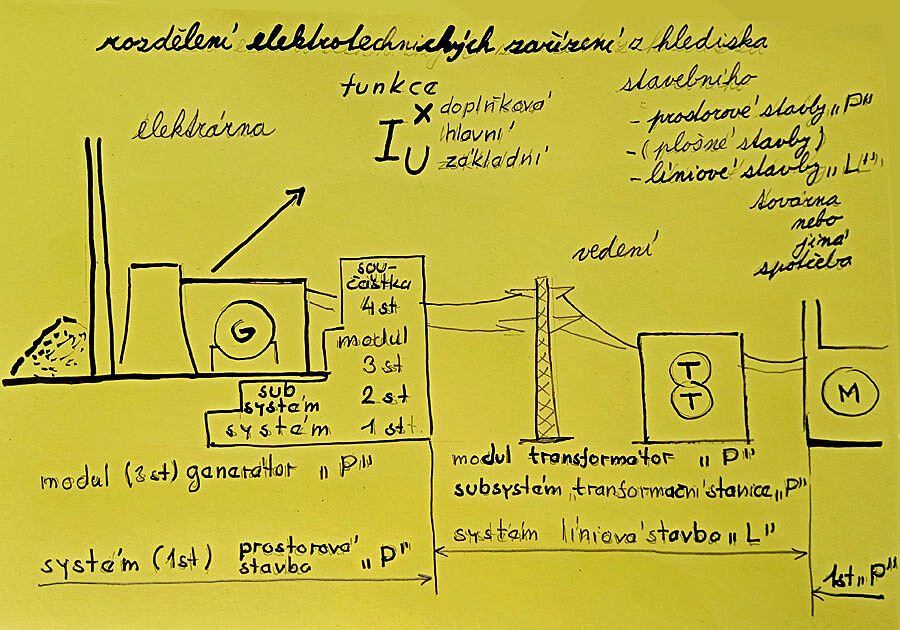 rozdělení elektrotechnických zařízení z hlediska
funkce
X doplňková
I hlavní
U základní
stavebního
- prostorové stavby „P"
- (plošné stavby)
- líniové stavby „L"
elektrárna
továrna
nebo
jiná
spotřeba
vedení
sou-
částka
4 st
modul
3 st
sub
systém
2 st
systém 1 st
G
T
T
M
modul (3st) generátor „P"
modul transformátor „P"
subsystém transformační stanice „P"
systém líniová stavba „L"
systém (1st) prostorová
stavba „P"
1st „P"